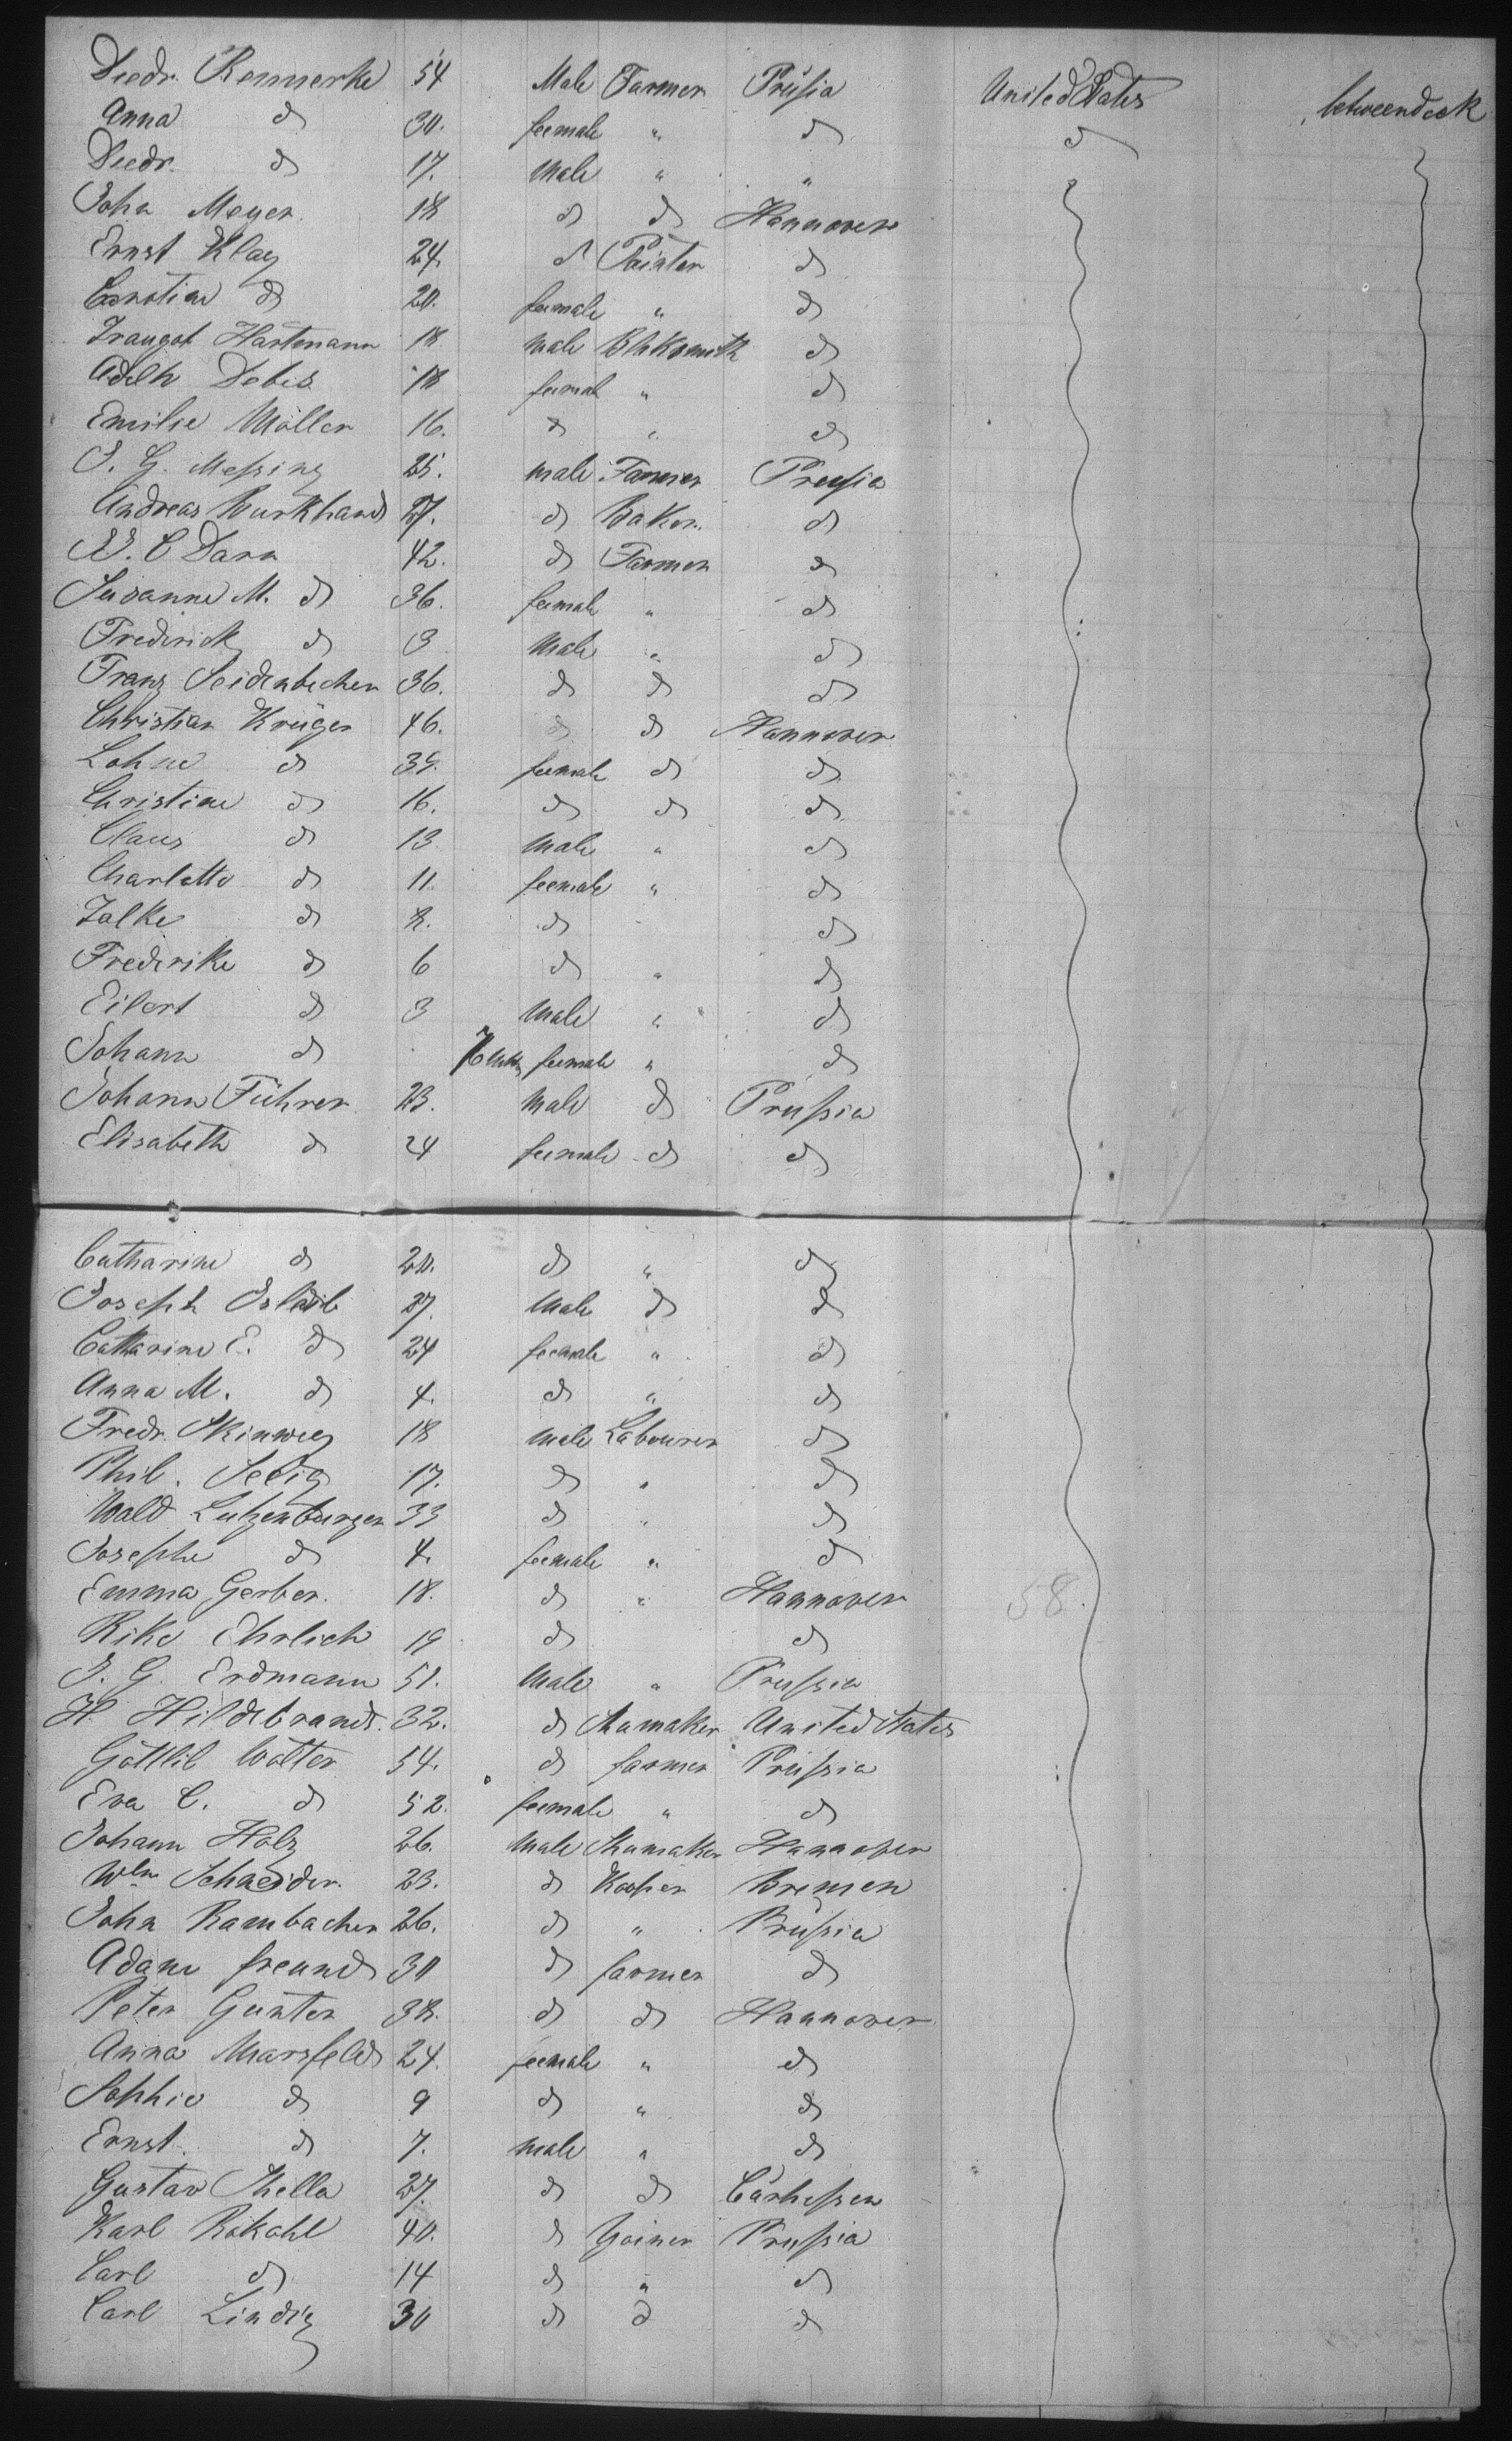 Diedr. Rennerke 54 Male Farmer Prüsia United States betweendeck
Anna d 30. feemale " d d
Diedr. d 17. Male " "
John Meyer 18 d d Hannover
Ernst Klag 24. d Painter d
Carotine d 20. feemale " d
Traugot Hartmann 18 male Blaksmith d
Adelh Debes 18 feemal " d
Emilie Möller 16. d " d
J. G. Messing 25. male Farmer Preusia
Andreas Burkhard 27. d Baker d
42. d Farmer d
Susanne M. d 36. feemale " d
Frederick d 3 Male " d
Franz Seidenbecher 36. d d d
Christian Krüger 46. d d Hannover
Lohne d 39. feemale d d
Christine d 16. d d d
Claus d 13 Male " d
Charlotte d 11. feemale " d
Talke d 8. d d
Frederike d 6 d " d
Eilert d 3 Male " d
Johann d feemale " d
Johann Führer 23. Male d Prussia
Elisabeth d 24 feemale d d
Catharine d 20. d " d
Joseph 27. Male d d
Catharine E. d 24 feemale " d
Anna M. d 4. d " d
Fredr. 18 male Labourer d
Phil. Selig 17. d " d
Wald Lutzenburger 33 d " d
Josephe d 4. feemale " d
Emma Gerber. 18. d " Hannover 58.
Rike Ehrlich 19 d d
J. G. Erdmann 51. Male " Prussia
H. Hildebrand. 32. d Shumaker United States
Göttlib Wolter 54. d farmer Prüssia
Eva C. d 52. feemale " d
Johann Holz 26. Male Shumaker Hannover
Wlm Schneider 23. d Kooper Bremen
John Rambacher 26. d " Prüssia
Adam freund 30 d farmer d
Peter Gunter 38. d d Hannover
Anna Marsfeld 24. feemale " d
Sophie d 9 d " d
Ernst d 7. male " d
Gustav Thella 27. d d Curhessen
Karl Rokahl 40. d Yoiner Prussia
Carl d 14 d " d
Carl Lindig 30 d d d